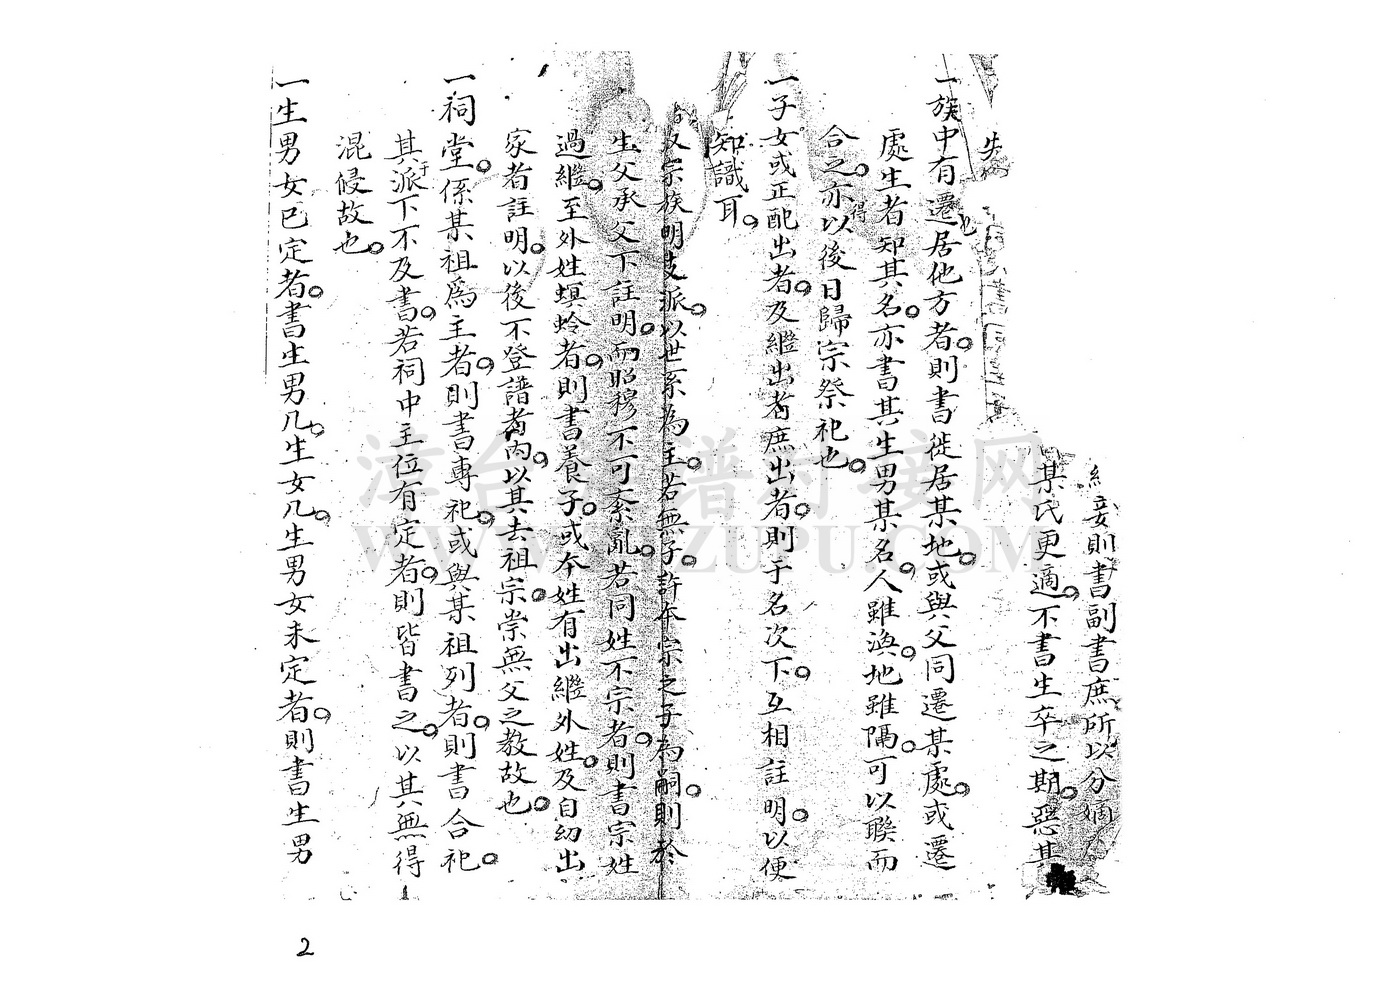 妾則書副書庶所以分嫡
某氏更適。不書生卒之期。惡其
失
也
一族中有遷居他方者。則書徙居某地。或與父同遷某處。或遷
處生者知其名。亦書其生男某名。人雖渙。地雖隔。可以聯而
合之。亦得以後日歸宗祭祀也。
一子女或正配出者。及繼出者庶出者。則于名次下。互相註明。以便
知識耳。
宗族明支派。以世系為主。若無子。許本宗之子為嗣。則於
生父承父下註明。而昭穆不可紊亂。若同姓不宗者。則書宗姓
過繼。至外姓螟蛉者。則書養子。或本姓有出繼外姓。及自幼出
家者註明。以後不登譜者內。以其去祖宗。棠無父之教故也。
一祠堂。係某祖為主者。則書專祀。或與某祖列者。則書合祀。
其于派下不及書。若祠中主位有定者。則皆書之。以其無得
混侵故也。
一生男女已定者。書生男几。生女几。生男女未定者。則書生男
漳台族譜對接網
WWW.ZZUPU.COM
2